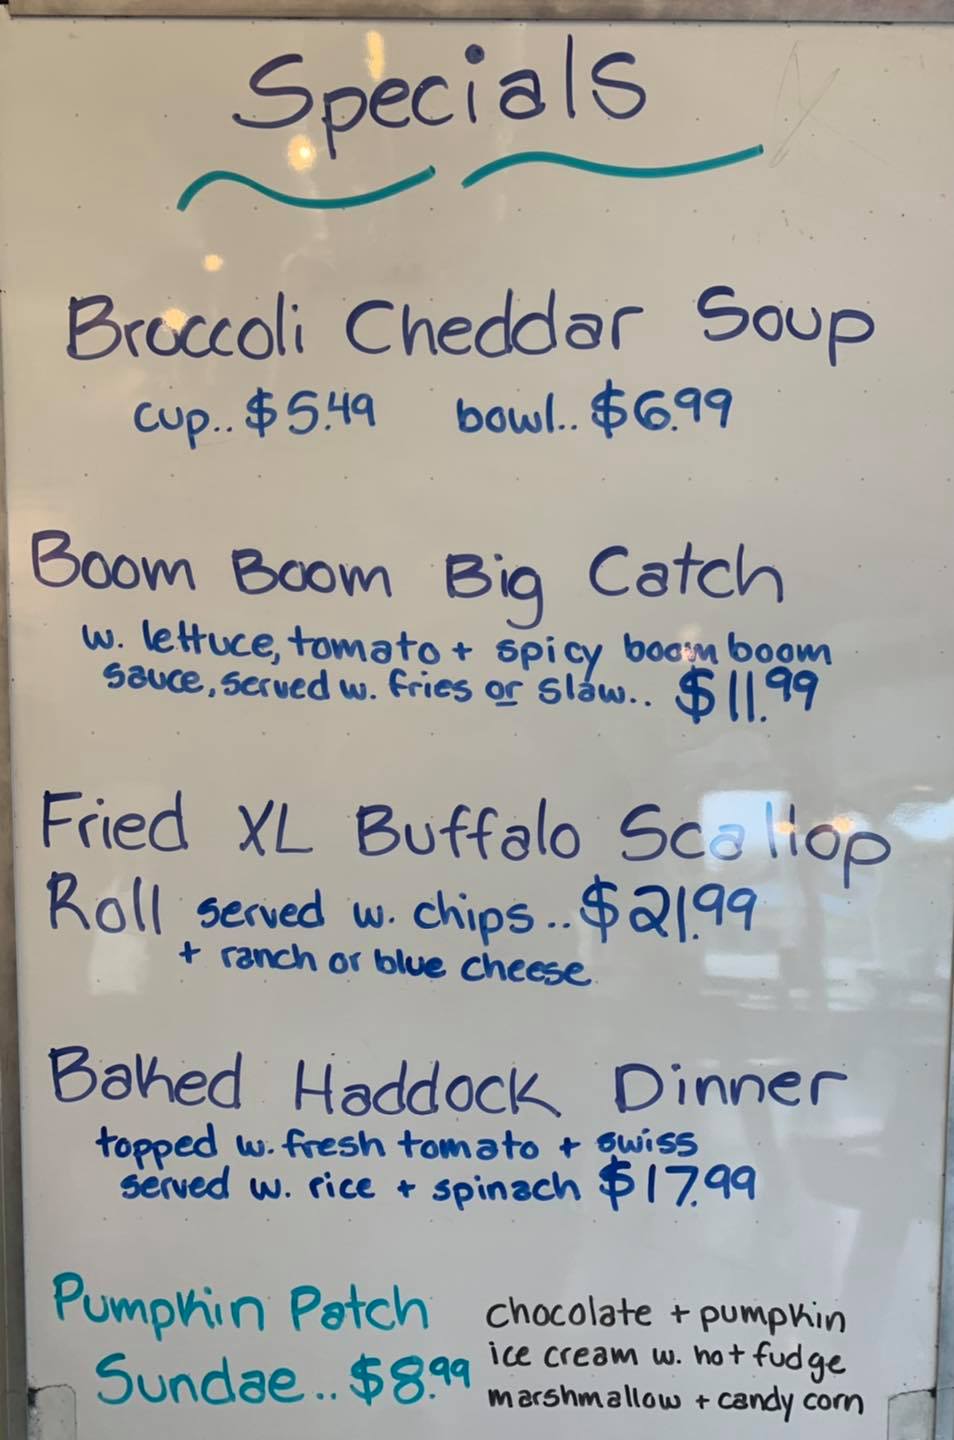 Specials
Broccoli Cheddar Soup
cup.. $5.49 bowl.. $6.99
Boom Boom Big Catch
w. lettuce, tomato + spicy boom boom
sauce, served w. fries or slaw.. $11.99
Fried XL Buffalo Scallop
Roll served w. chips.. $21.99
+ ranch or blue cheese
Baked Haddock Dinner
topped w. fresh tomato + swiss
served w. rice + spinach $17.99
Pumpkin Patch
Sundae.. $8.99
chocolate + pumpkin
ice cream w. hot fudge
marshmallow + candy corn